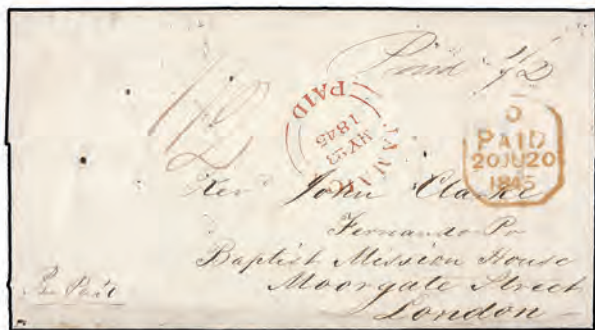 Paid 1/2
1/2
PAID
JAMAICA
MY 23
1845
PAID
20 JU 20
1845
Revd John Clarke
Fernando Po
Baptist Mission House
Moorgate Street
London